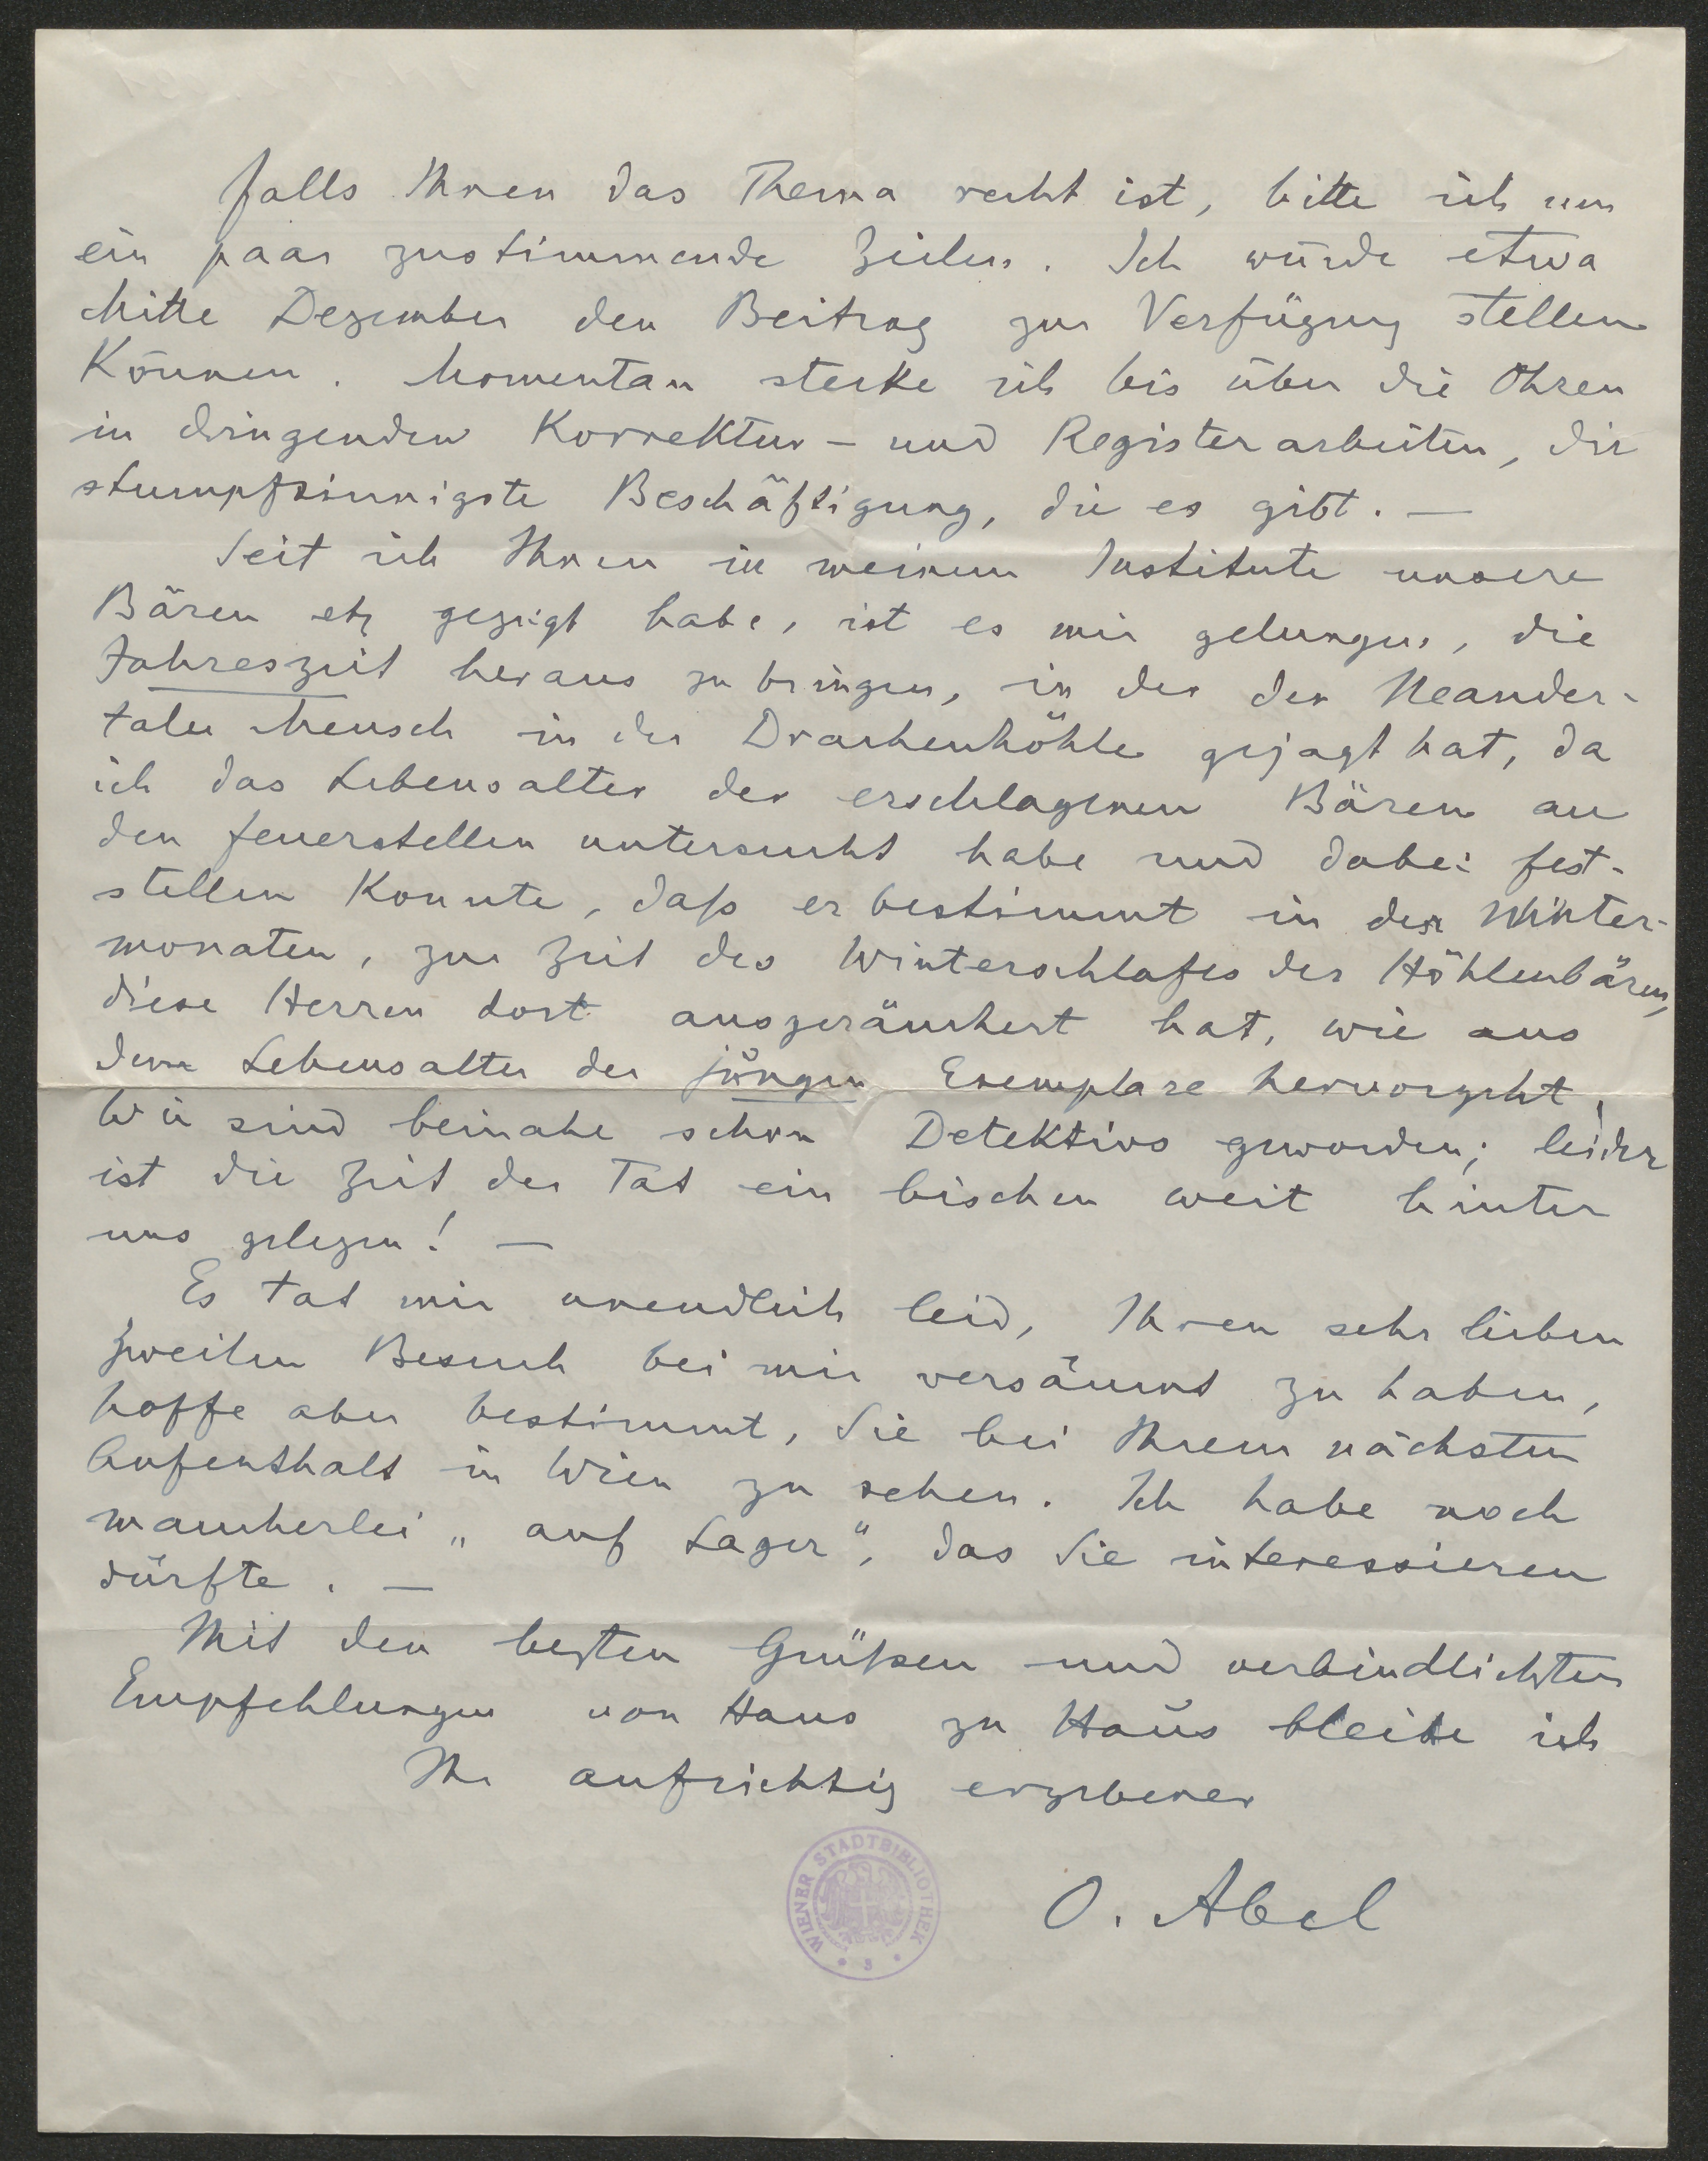 Falls Ihnen das Thema recht ist, bitte ich um
ein paar zustimmende Zeilen. Ich würde etwa
Mitte Dezember den Beitrag zur Verfügung stellen
können. Momentan stecke ich bis über die Ohren
in dringenden Korrektur- und Registerarbeiten, die
stumpfsinnigste Beschäftigung, die es gibt. —
Seit ich Ihnen in meinem Institute unsere
Bären etz gezeigt habe, ist es mir gelungen, die
Jahreszeit heraus zu bringen, in der der Neander-
taler Mensch in der Drachenhöhle gejagt hat, da
ich das Lebensalter der erschlagenen Bären an
den Feuerstellen untersucht habe und dabei fest-
stellen konnte, daß er bestimmt in den Winter-
monaten, zur Zeit des Winterschlafes der Höhlenbären,
diese Herren dort ausgeräuchert hat, wie aus
dem Lebensalter der jungen Exemplare hervorgeht.
Wir sind beinahe schon Detektivs geworden; leider
ist die Zeit der Tat ein bischen weit hinter
uns gelegen! —
Es tat mir unendlich leid, Ihren sehr lieben
zweiten Besuch bei mir versäumt zu haben,
hoffe aber bestimmt, Sie bei Ihrem nächsten
Aufenthalt in Wien zu sehen. Ich habe noch
mancherlei „auf Lager", das Sie interessieren
dürfte. —
Mit den besten Grüßen und verbindlichsten
Empfehlungen von Haus zu Haus bleibe ich
Ihr aufrichtig ergebener
O. Abel
WIENER STADTBIBLIOTHEK
3